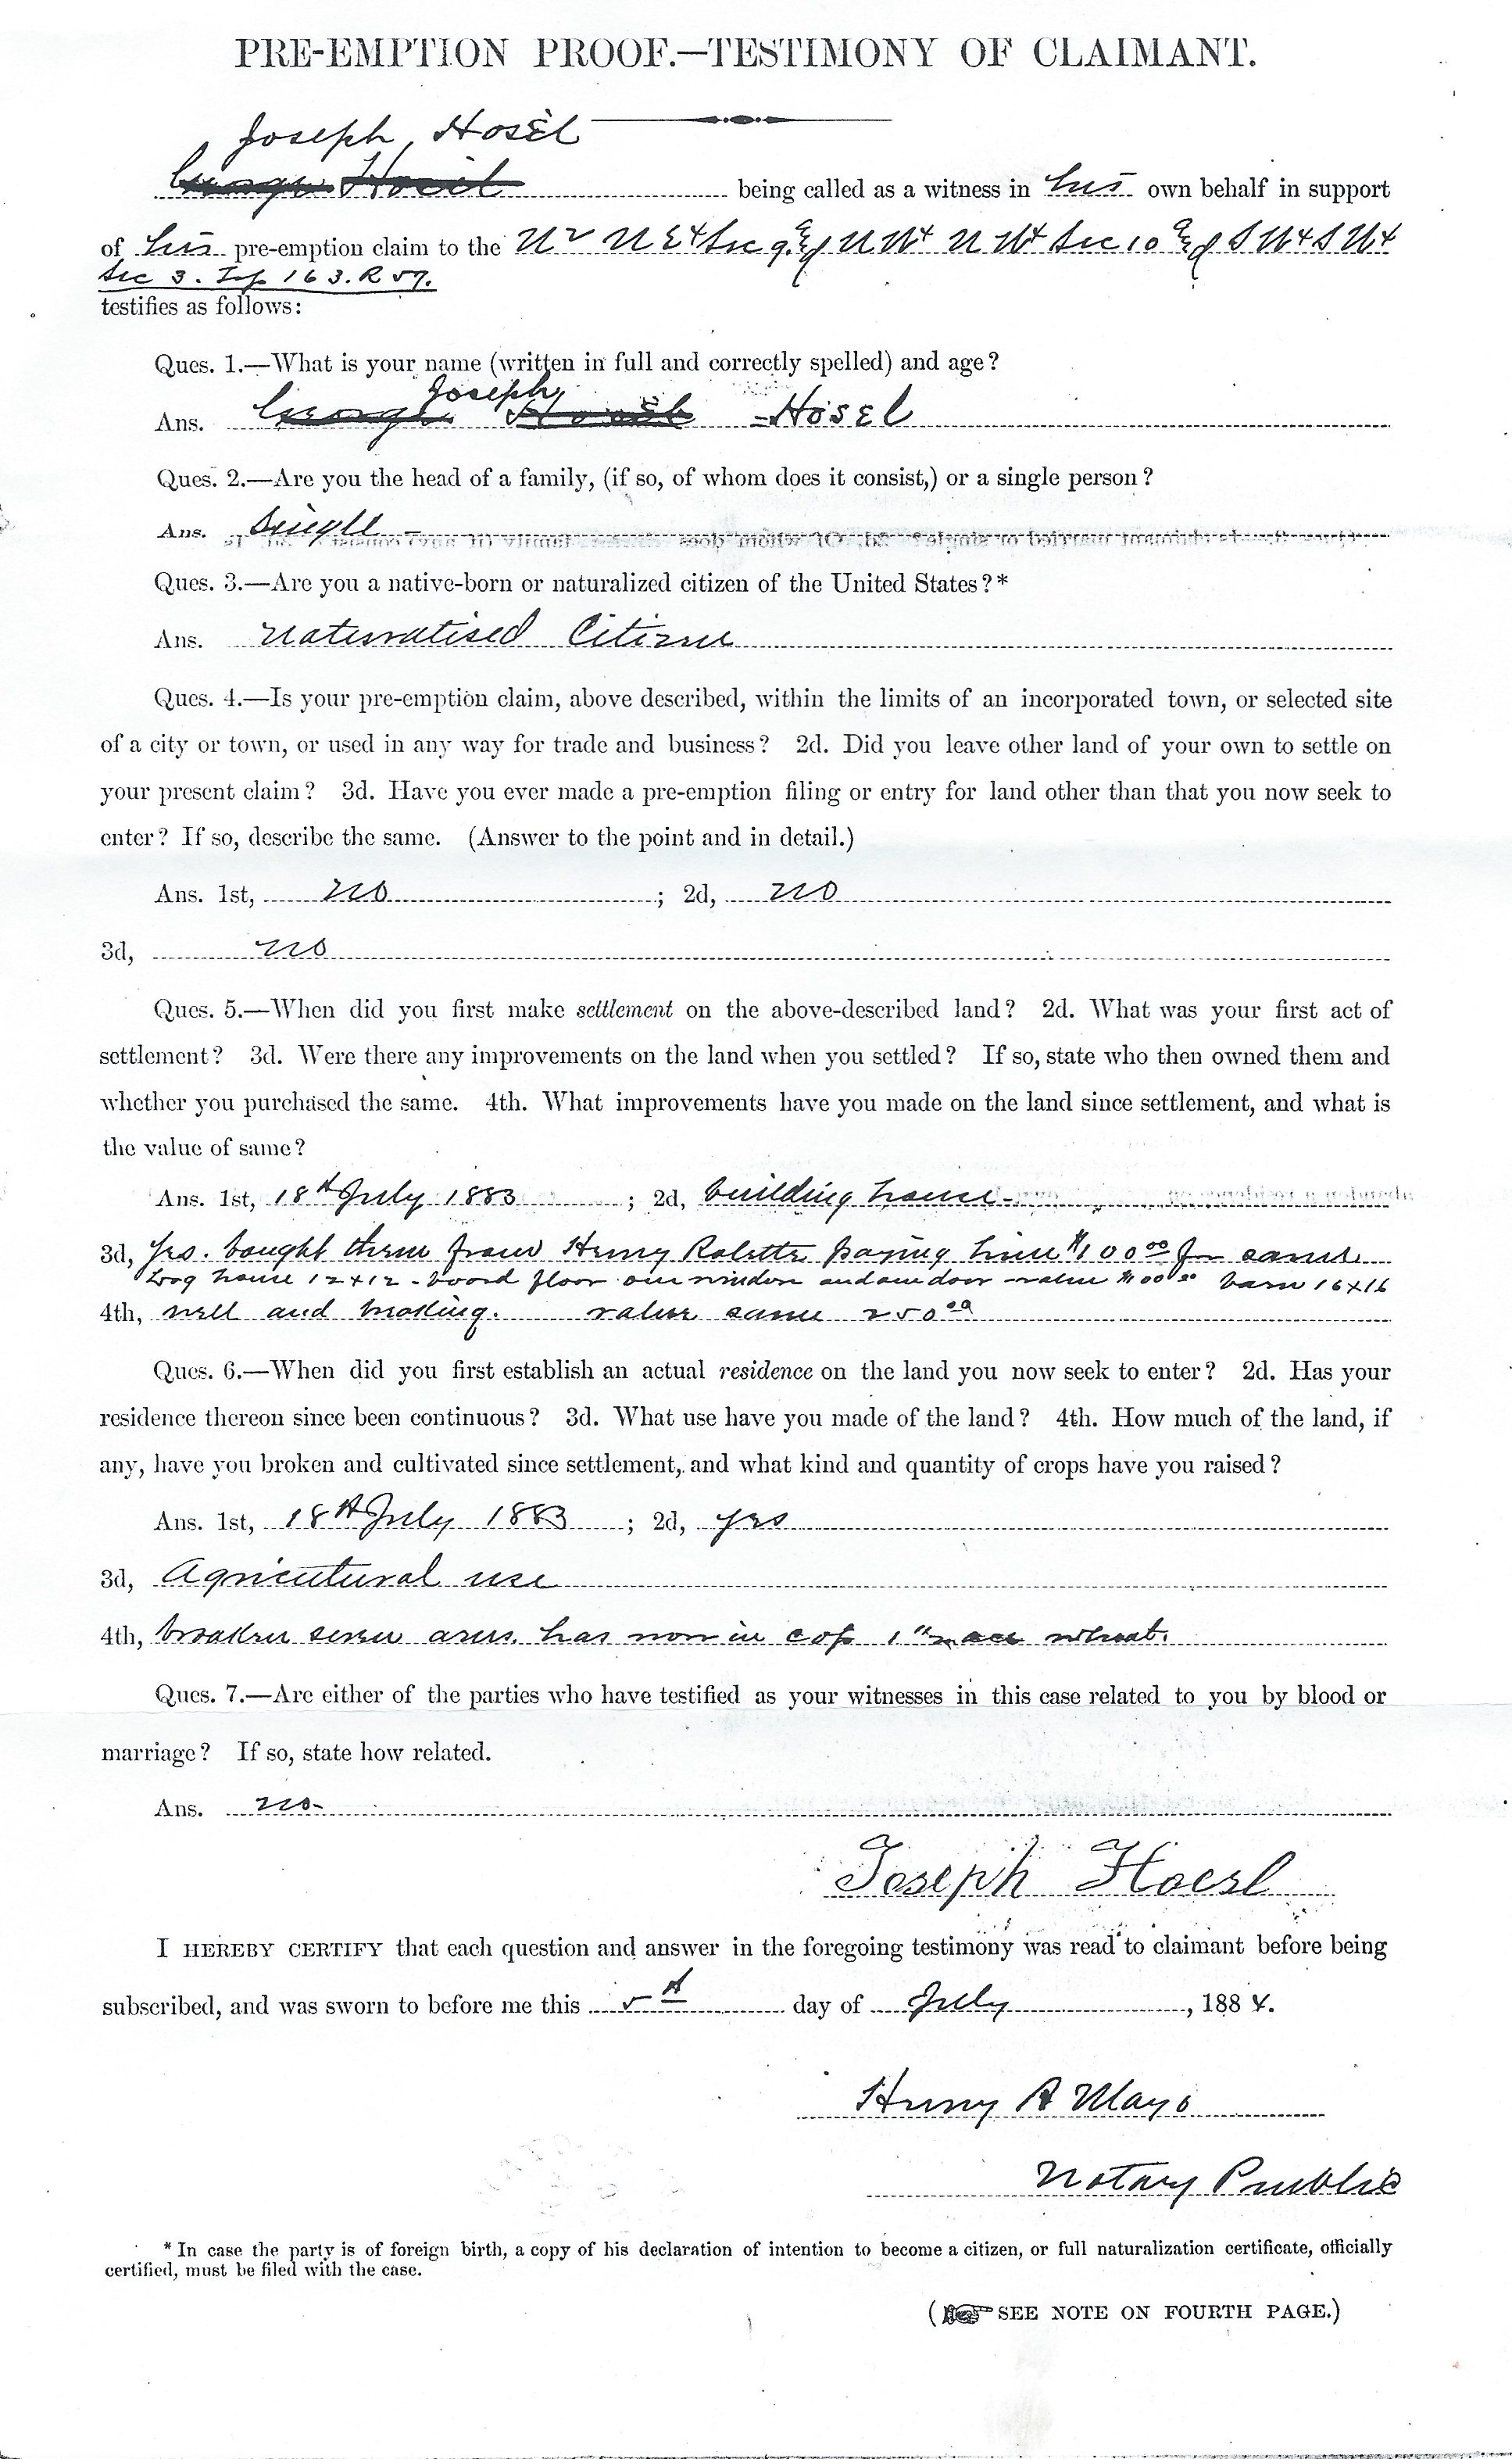 PRE-EMPTION PROOF.—TESTIMONY OF CLAIMANT.
Joseph Hosel
George Hosel being called as a witness in his own behalf in support
of his pre-emption claim to the N2 NE4 Sec 9. & NW4 NW4 Sec 10 & SW4 SW4
Sec 3. Tp 163. R 57.
testifies as follows:
Ques. 1.—What is your name (written in full and correctly spelled) and age?
Joseph
Ans. George Hosel Hosel
Ques. 2.—Are you the head of a family, (if so, of whom does it consist,) or a single person?
Ans. Single
Ques. 3.—Are you a native-born or naturalized citizen of the United States?*
Ans. Naturalised Citizen
Ques. 4.—Is your pre-emption claim, above described, within the limits of an incorporated town, or selected site
of a city or town, or used in any way for trade and business? 2d. Did you leave other land of your own to settle on
your present claim? 3d. Have you ever made a pre-emption filing or entry for land other than that you now seek to
enter? If so, describe the same. (Answer to the point and in detail.)
Ans. 1st, no ; 2d, no
3d, no
Ques. 5.—When did you first make settlement on the above-described land? 2d. What was your first act of
settlement? 3d. Were there any improvements on the land when you settled? If so, state who then owned them and
whether you purchased the same. 4th. What improvements have you made on the land since settlement, and what is
the value of same?
Ans. 1st, 18th July 1883 ; 2d, building house -
3d, yes. bought them from Henry Rolette paying him $100 00 for same
Log house 12x12 - board floor one window and one door - value $100 00 barn 16x16
4th, well and breaking. value same 250 00
Ques. 6.—When did you first establish an actual residence on the land you now seek to enter? 2d. Has your
residence thereon since been continuous? 3d. What use have you made of the land? 4th. How much of the land, if
any, have you broken and cultivated since settlement, and what kind and quantity of crops have you raised?
Ans. 1st, 18th July 1883 ; 2d, yes
3d, Agricultural use
4th, broken seven acres. has now in cop wheat.
Ques. 7.—Are either of the parties who have testified as your witnesses in this case related to you by blood or
marriage? If so, state how related.
Ans. no-
Joseph Hoesl
I HEREBY CERTIFY that each question and answer in the foregoing testimony was read to claimant before being
subscribed, and was sworn to before me this 5th day of July, 1884.
Henry A Mayo
Notary Public
* In case the party is of foreign birth, a copy of his declaration of intention to become a citizen, or full naturalization certificate, officially
certified, must be filed with the case.
(☞ SEE NOTE ON FOURTH PAGE.)